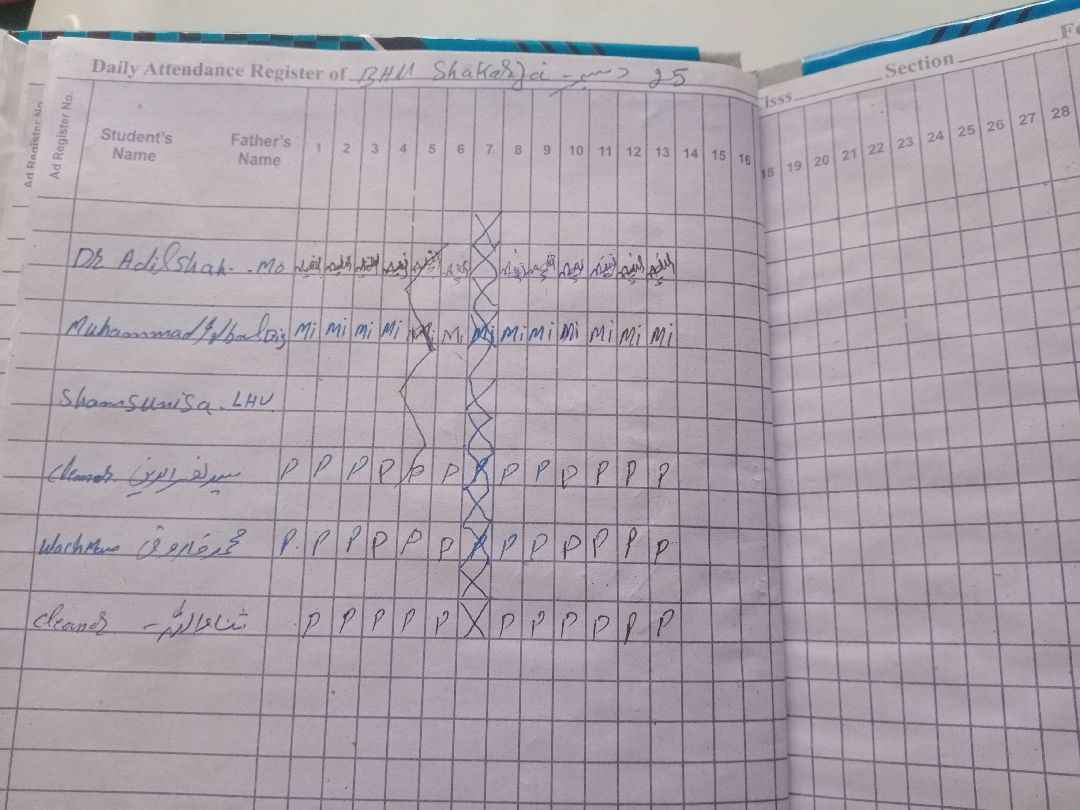 Daily Attendance Register of BHU Shakarzai دسمبر 25
Section
Ad Register No.
Ad Register No.
Student's Name Father's Name 1 2 3 4 5 6 7 8 9 10 11 12 13 14 15 16
18 19 20 21 22 23 24 25 26 27 28
Dr Adil Shah. MO
Muhammad Iqbal Dis Mi Mi Mi Mi Mi Mi Mi Mi Mi Mi Mi Mi Mi
Shamsunisa. LHV
Cleaner P P P P P P P P P P P P P
Wachman محمد فاروق P. P P P P P P P P P P P P
Cleaner P P P P P X P P P P P P